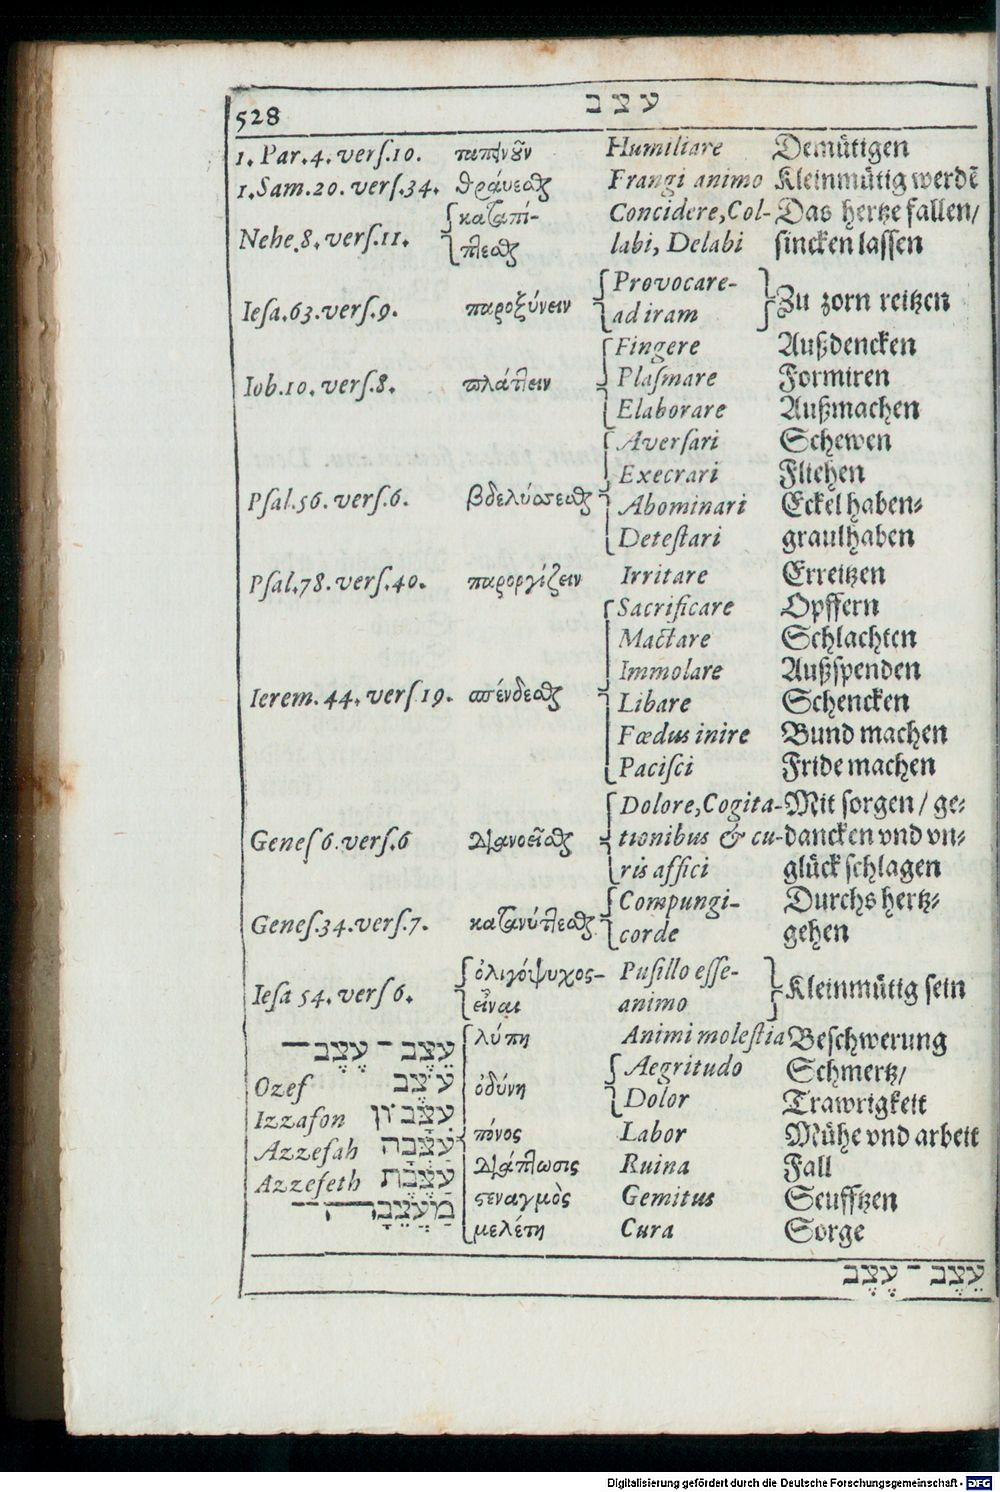 528 עצב
1. Par. 4. vers. 10. ταπεινοῦν Humiliare Demütigen
1. Sam. 20. vers. 34. θραύεσθαι Frangi animo Kleinmütig werdē
καταπί- Concidere, Col- Das hertze fallen/
Nehe. 8. vers. 11. πτεσθαι labi, Delabi sincken lassen
Provocare-
Iesa. 63. vers. 9. παροξύνειν ad iram Zu zorn reitzen
Fingere Außdencken
Iob. 10. vers. 8. πλάττειν Plasmare Formiren
Elaborare Außmachen
Aversari Schewen
Execrari Fliehen
Psal. 56. vers. 6. βδελύσσεσθαι Abominari Eckel haben-
Detestari graul haben
Psal. 78. vers. 40. παροργίζειν Irritare Erreitzen
Sacrificare Opffern
Mactare Schlachten
Immolare Außspenden
Ierem. 44. vers 19. σπένδεσθαι Libare Schencken
Fœdus inire Bund machen
Pacisci Fride machen
Dolore, Cogita- Mit sorgen / ge-
Genes 6. vers. 6 διανοεῖσθαι tionibus & cu- dancken vnd vn-
ris affici glück schlagen
Compungi- Durchs hertz-
Genes. 34. vers. 7. κατανύττεσθαι corde gehen
ὀλιγόψυχος- Pusillo esse-
Iesa 54. vers 6. εἶναι animo Kleinmütig sein
עֵצֶב - עֶצֶב λύπη Animi molestia Beschwerung
Ozef עֹצֶב ὀδύνη Aegritudo Schmertz/
Dolor Trawrigkeit
Izzafon עִצָּבוֹן πόνος Labor Mühe vnd arbeit
Azzefah עַצָּבָה διάπτωσις Ruina Fall
Azzefeth עַצֶּבֶת στεναγμὸς Gemitus Seufftzen
מַעֲצֵבָה μελέτη Cura Sorge
עֵצֶב - עֶצֶב
Digitalisierung gefördert durch die Deutsche Forschungsgemeinschaft - DFG